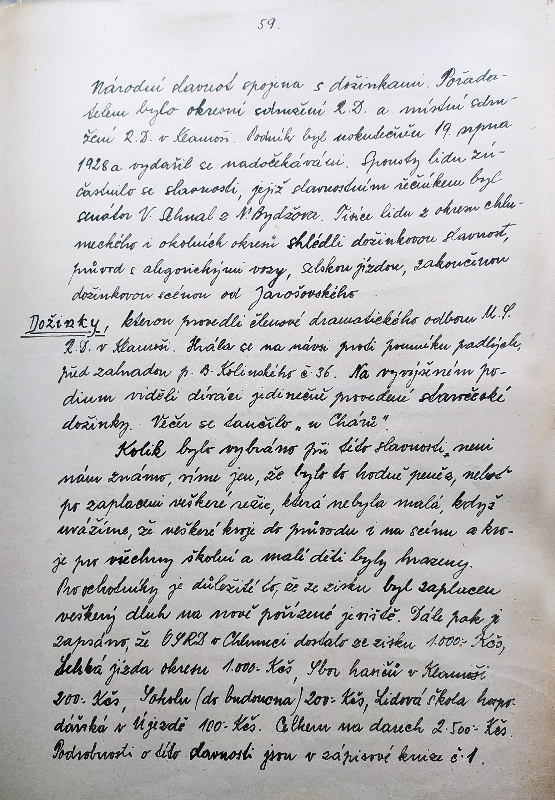 59.
Národní slavnost spojena s dožinkami. Pořada-
telem bylo okresní sdružení R.D. a místní sdru-
žení R.D. v Klamoši. Podnik byl uskutečněn 19. srpna
1928 a vydařil se nadočekávání. Spousty lidu zú-
častnilo se slavnosti, jejíž slavnostním řečníkem byl
senátor V. Sehnal z N. Bydžova. Tisíce lidu z okresu chlu-
meckého i okolních okresů shlédli dožinkovou slavnost,
průvod s alegorickými vozy, selskou jízdou, zakončenou
dožinkovou scénou od Jarošovského
Dožinky, kterou provedli členové dramatického odboru M.S.
R.D. v Klamoši. Hrála se na návsi proti pomníku padlých,
před zahradou p. B. Kolinského č 36. Na vyvýšeném po-
dium viděli diváci jedinečně provedené staročeské
dožinky. Večer se tančilo „u Chárů".
Kolik bylo vybráno při této slavnosti, není
nám známo, víme jen, že bylo to hodně peněz, neboť
po zaplacení veškeré režie, která nebyla malá, když
uvážíme, že veškeré kroje do průvodu i na scénu a kro-
je pro všechny školní a malé děti byly hrazeny.
Pro ochotníky je důležité to, že ze zisku byl zaplacen
veškerý dluh na nově pořízené jeviště. Dále pak je
zapsáno, že OSRD v Chlumci dostalo ze zisku 1.000.- Kčs,
Selská jízda okresu 1.000.- Kčs, Sbor hasičů v Klamoši
200.- Kčs, Sokolu (do budoucna) 200.- Kčs, Lidová škola hospo-
dářská v Újezdě 100.- Kčs. Celkem na darech 2.500.- Kčs.
Podrobnosti o této slavnosti jsou v zápisové knize č. 1.